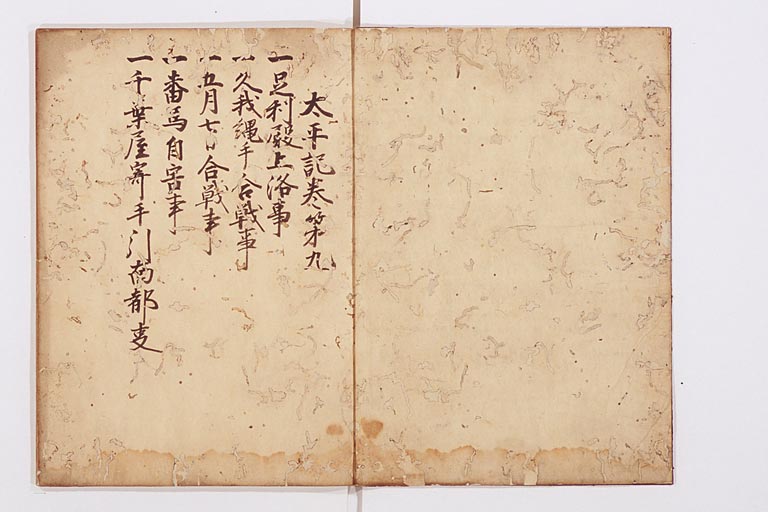 太平記巻第九
一足利殿上洛事
一久我縄手合戦事
一五月七日合戦事
一番馬自害事
一千葉屋寄手引南都事